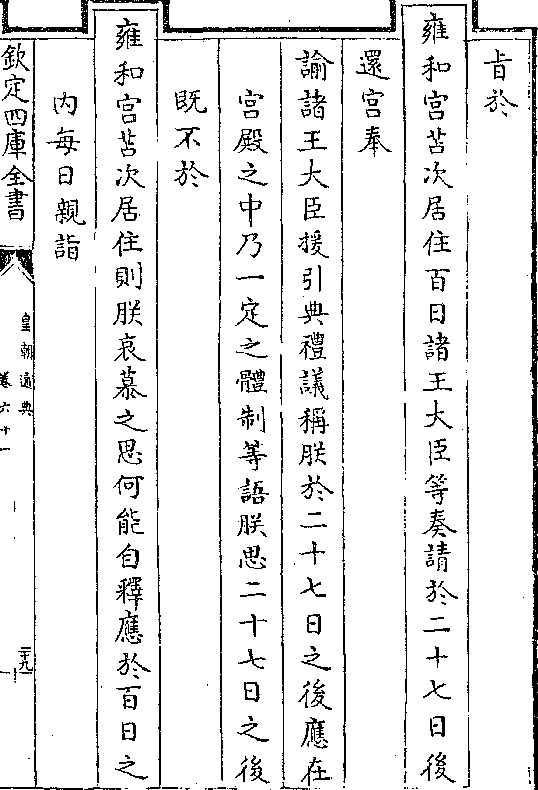 㫖於
雍和宫苫次居住百日諸王大臣等奏請於二十七日後
還宫奉
諭諸王大臣援引典禮議稱朕於二十七日之後應在
宫殿之中乃一定之體制等語朕思二十七日之後
既不於
雍和宫苫次居住則朕哀慕之思何能自釋應於百日之
内每日親詣
欽定四庫全書
皇朝通典
卷六十一
二十九